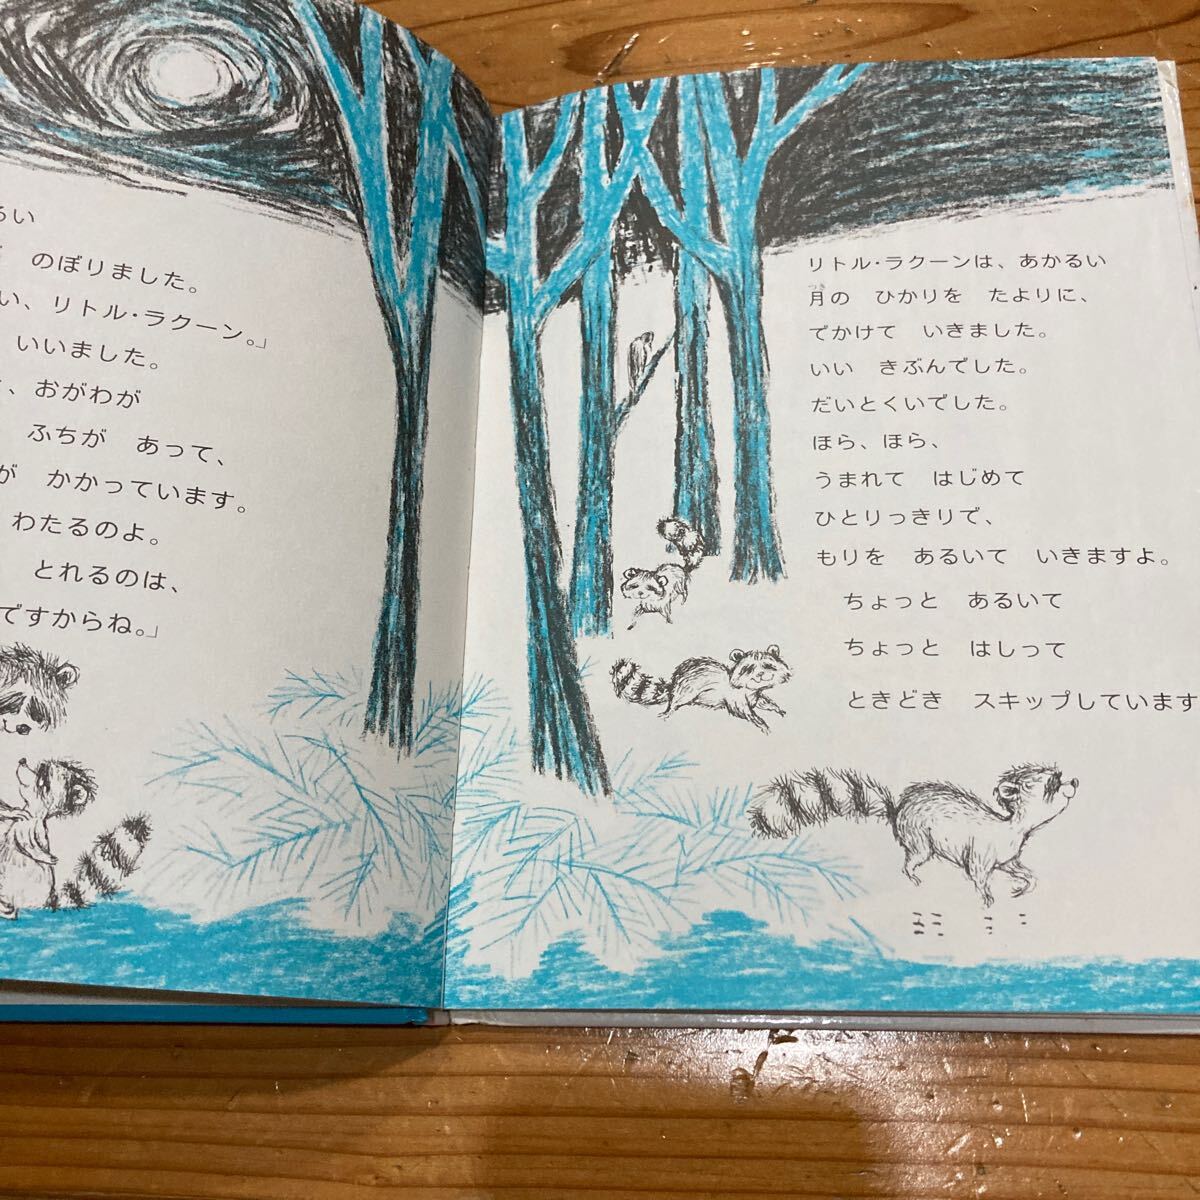 のぼりました。
い、リトル・ラクーン。」
いいました。
、おがわが
ふちが　あって、
が　かかっています。
わたるのよ。
とれるのは、
ですからね。」
リトル・ラクーンは、あかるい
月の　ひかりを　たよりに、
でかけて　いきました。
いい　きぶんでした。
だいとくいでした。
ほら、ほら、
うまれて　はじめて
ひとりっきりで、
もりを　あるいて　いきますよ。
ちょっと　あるいて
ちょっと　はしって
ときどき　スキップしています